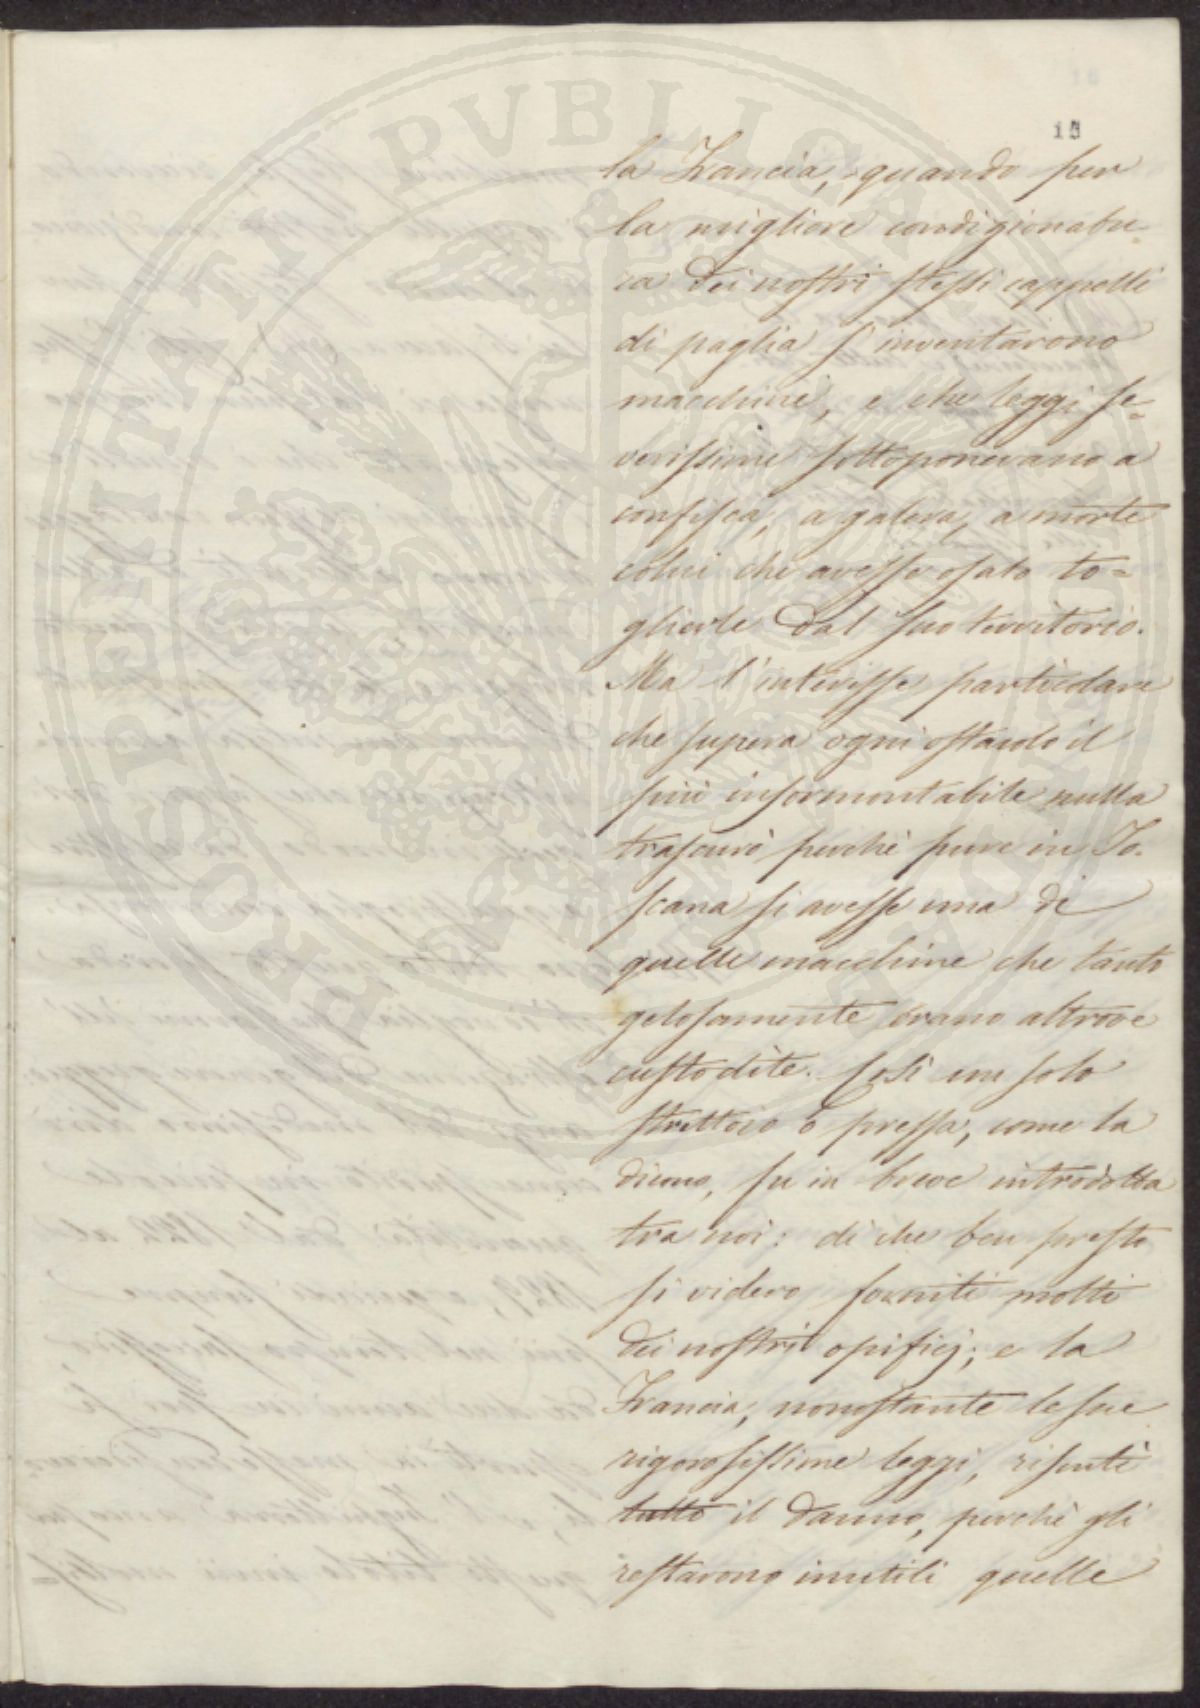 PROSPERITATI PVBLICAE AVGENDAE
la Francia, quando per
la migliore condizionatu-
ra dei nostri stessi cappelli
di paglia s'inventarono
macchine, e che leggi se-
verissime sottoponevano a
confisca, a galera, a morte
colui che avesse osato to-
glierle dal suo territorio.
Ma l'interesse particolare
che supera ogni ostacolo il
più insormontabile nulla
trascurò perchè pure in To-
scana si avesse una di
quelle macchine che tanto
gelosamente erano altrove
custodite. Così un solo
strettoio o pressa, come la
dicono, fu in breve introdotta
tra noi: di che ben presto
si videro forniti molti
dei nostri opificj; e la
Francia, nonostante le sue
rigorosissime leggi, risentì
tutto il danno, perchè gli
restarono inutili quelle